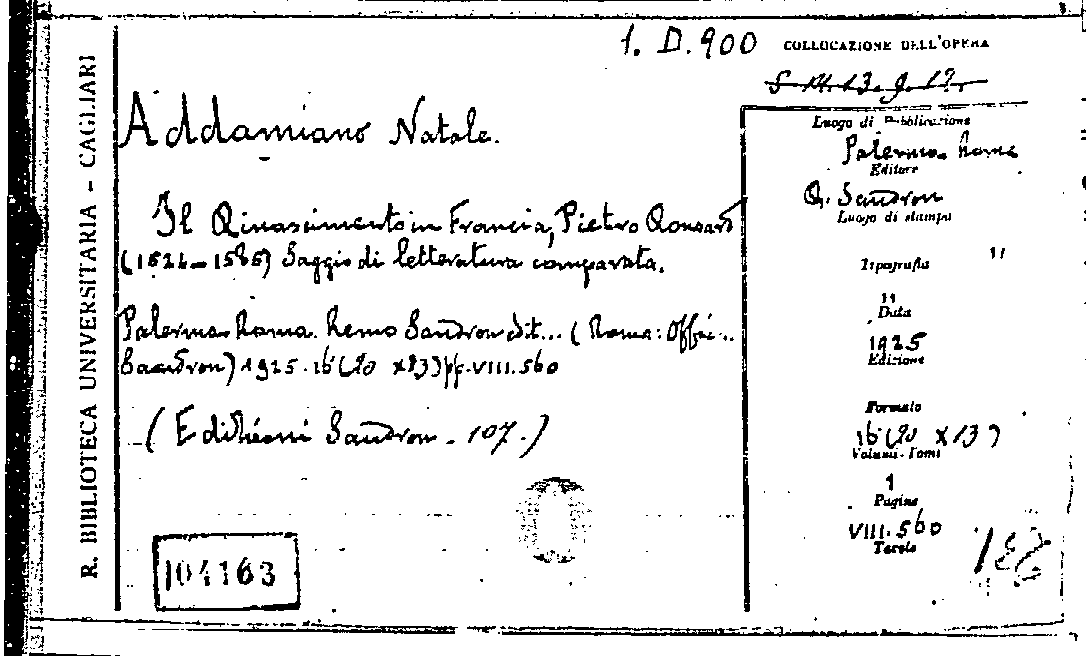 R. BIBLIOTECA UNIVERSITARIA - CAGLIARI
1. D. 900
COLLOCAZIONE DELL'OPERA
Addamiano Natale.
Il Rinascimento in Francia, Pietro Ronsard
(1524-1585) Saggio di letteratura comparata.
Palermo-Roma. Remo Sandron edit... (Roma: Offic...
Sandron) 1925. 16 (20 x 13) pp. VIII. 560
(Edizioni Sandron. 107.)
104163
Luogo di Pubblicazione
Palermo-Roma
Editore
R. Sandron
Luogo di stampa
"
Tipografia
"
Data
1925
Edizione
Formato
16 (20 x 13)
Volumi-Tomi
1
Pagine
VIII. 560
Tavole